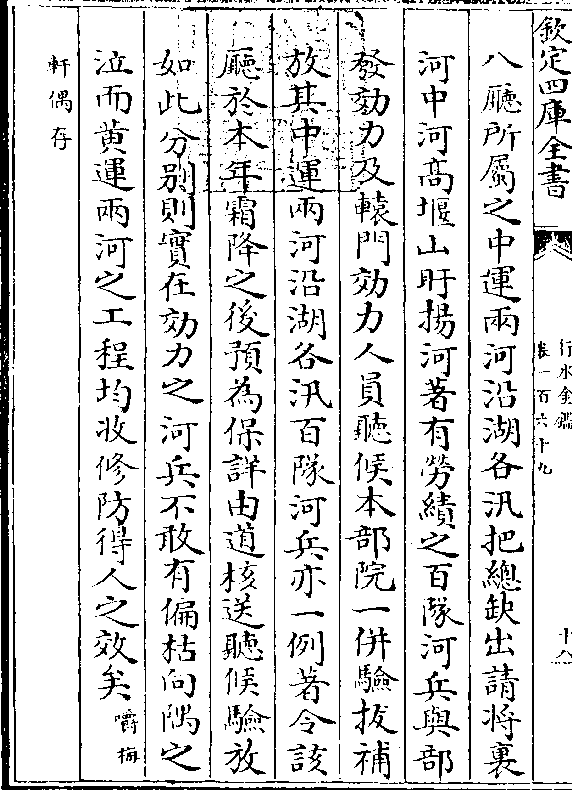 欽定四庫全書
行水金鑑
卷一百六十九
十八
八廳所屬之中運兩河沿湖各汛把總缺出請将裏
河中河髙堰山盱揚河著有勞績之百隊河兵與部
發効力及轅門効力人員聽候本部院一併驗拔補
放其中運兩河沿湖各汛百隊河兵亦一例著令該
廳於本年霜降之後預為保詳由道核送聽候驗放
如此分别則實在効力之河兵不敢有偏枯向隅之
泣而黄運兩河之工程均收修防得人之效矣嚼梅
軒偶存